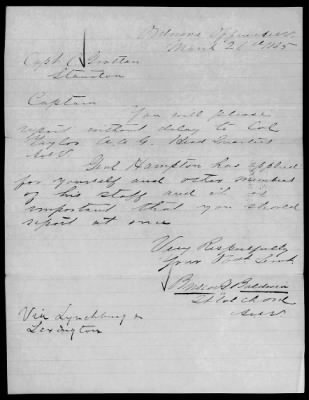 Ordnance Office
March 26th 1865
Capt C Grattan
Staunton
Captain
You will please
report without delay to Col
Taylor A.A.G. Head Quarters
Genl Hampton has applied
for yourself and other members
of his staff and it is
important that you should
report at once
Very Respectfully
Your Obt Servt
Briscoe G Baldwin
Lt Col Ch Ord
Via Lynchburg &
Lexington